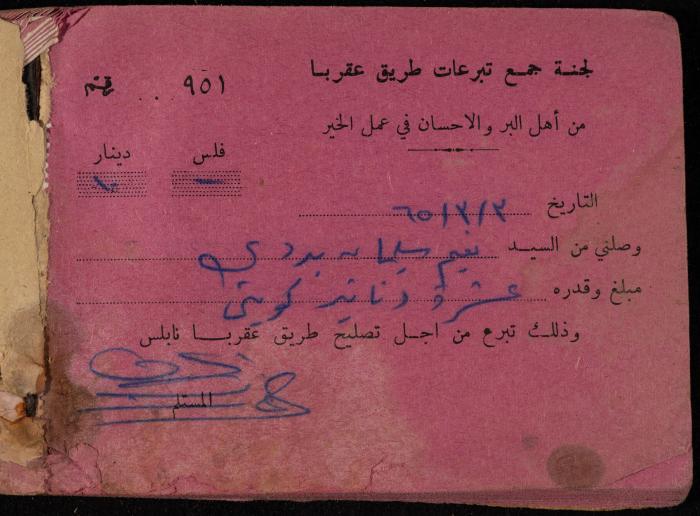 لجنة جمع تبرعات طريق عقربا
٩٥١ . . رقم
من أهل البر والاحسان في عمل الخير
فلس دينار
— ١٠
التاريخ ٦٥/٣/٣
وصلني من السيد نعيم سليمان
مبلغ وقدره عشرة دنانير كويتي
وذلك تبرع من اجل تصليح طريق عقربا نابلس
المستلم